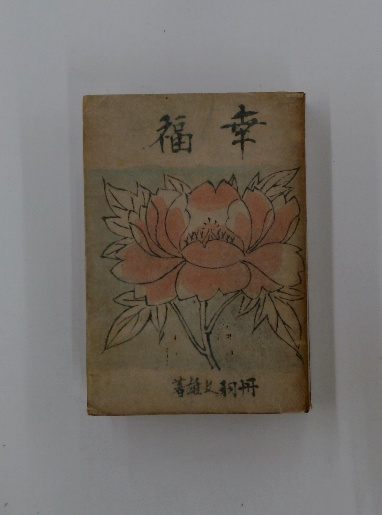 幸福
丹羽文雄著